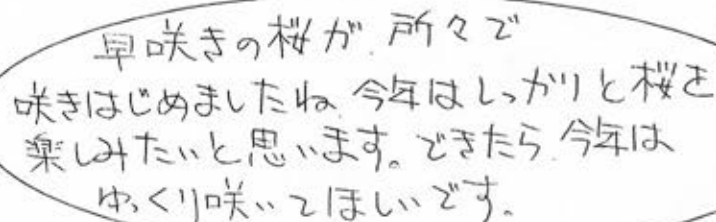 早咲きの桜が、所々で
咲きはじめましたね。今年はしっかりと桜を
楽しみたいと思います。できたら、今年は
ゆっくり咲いてほしいです。